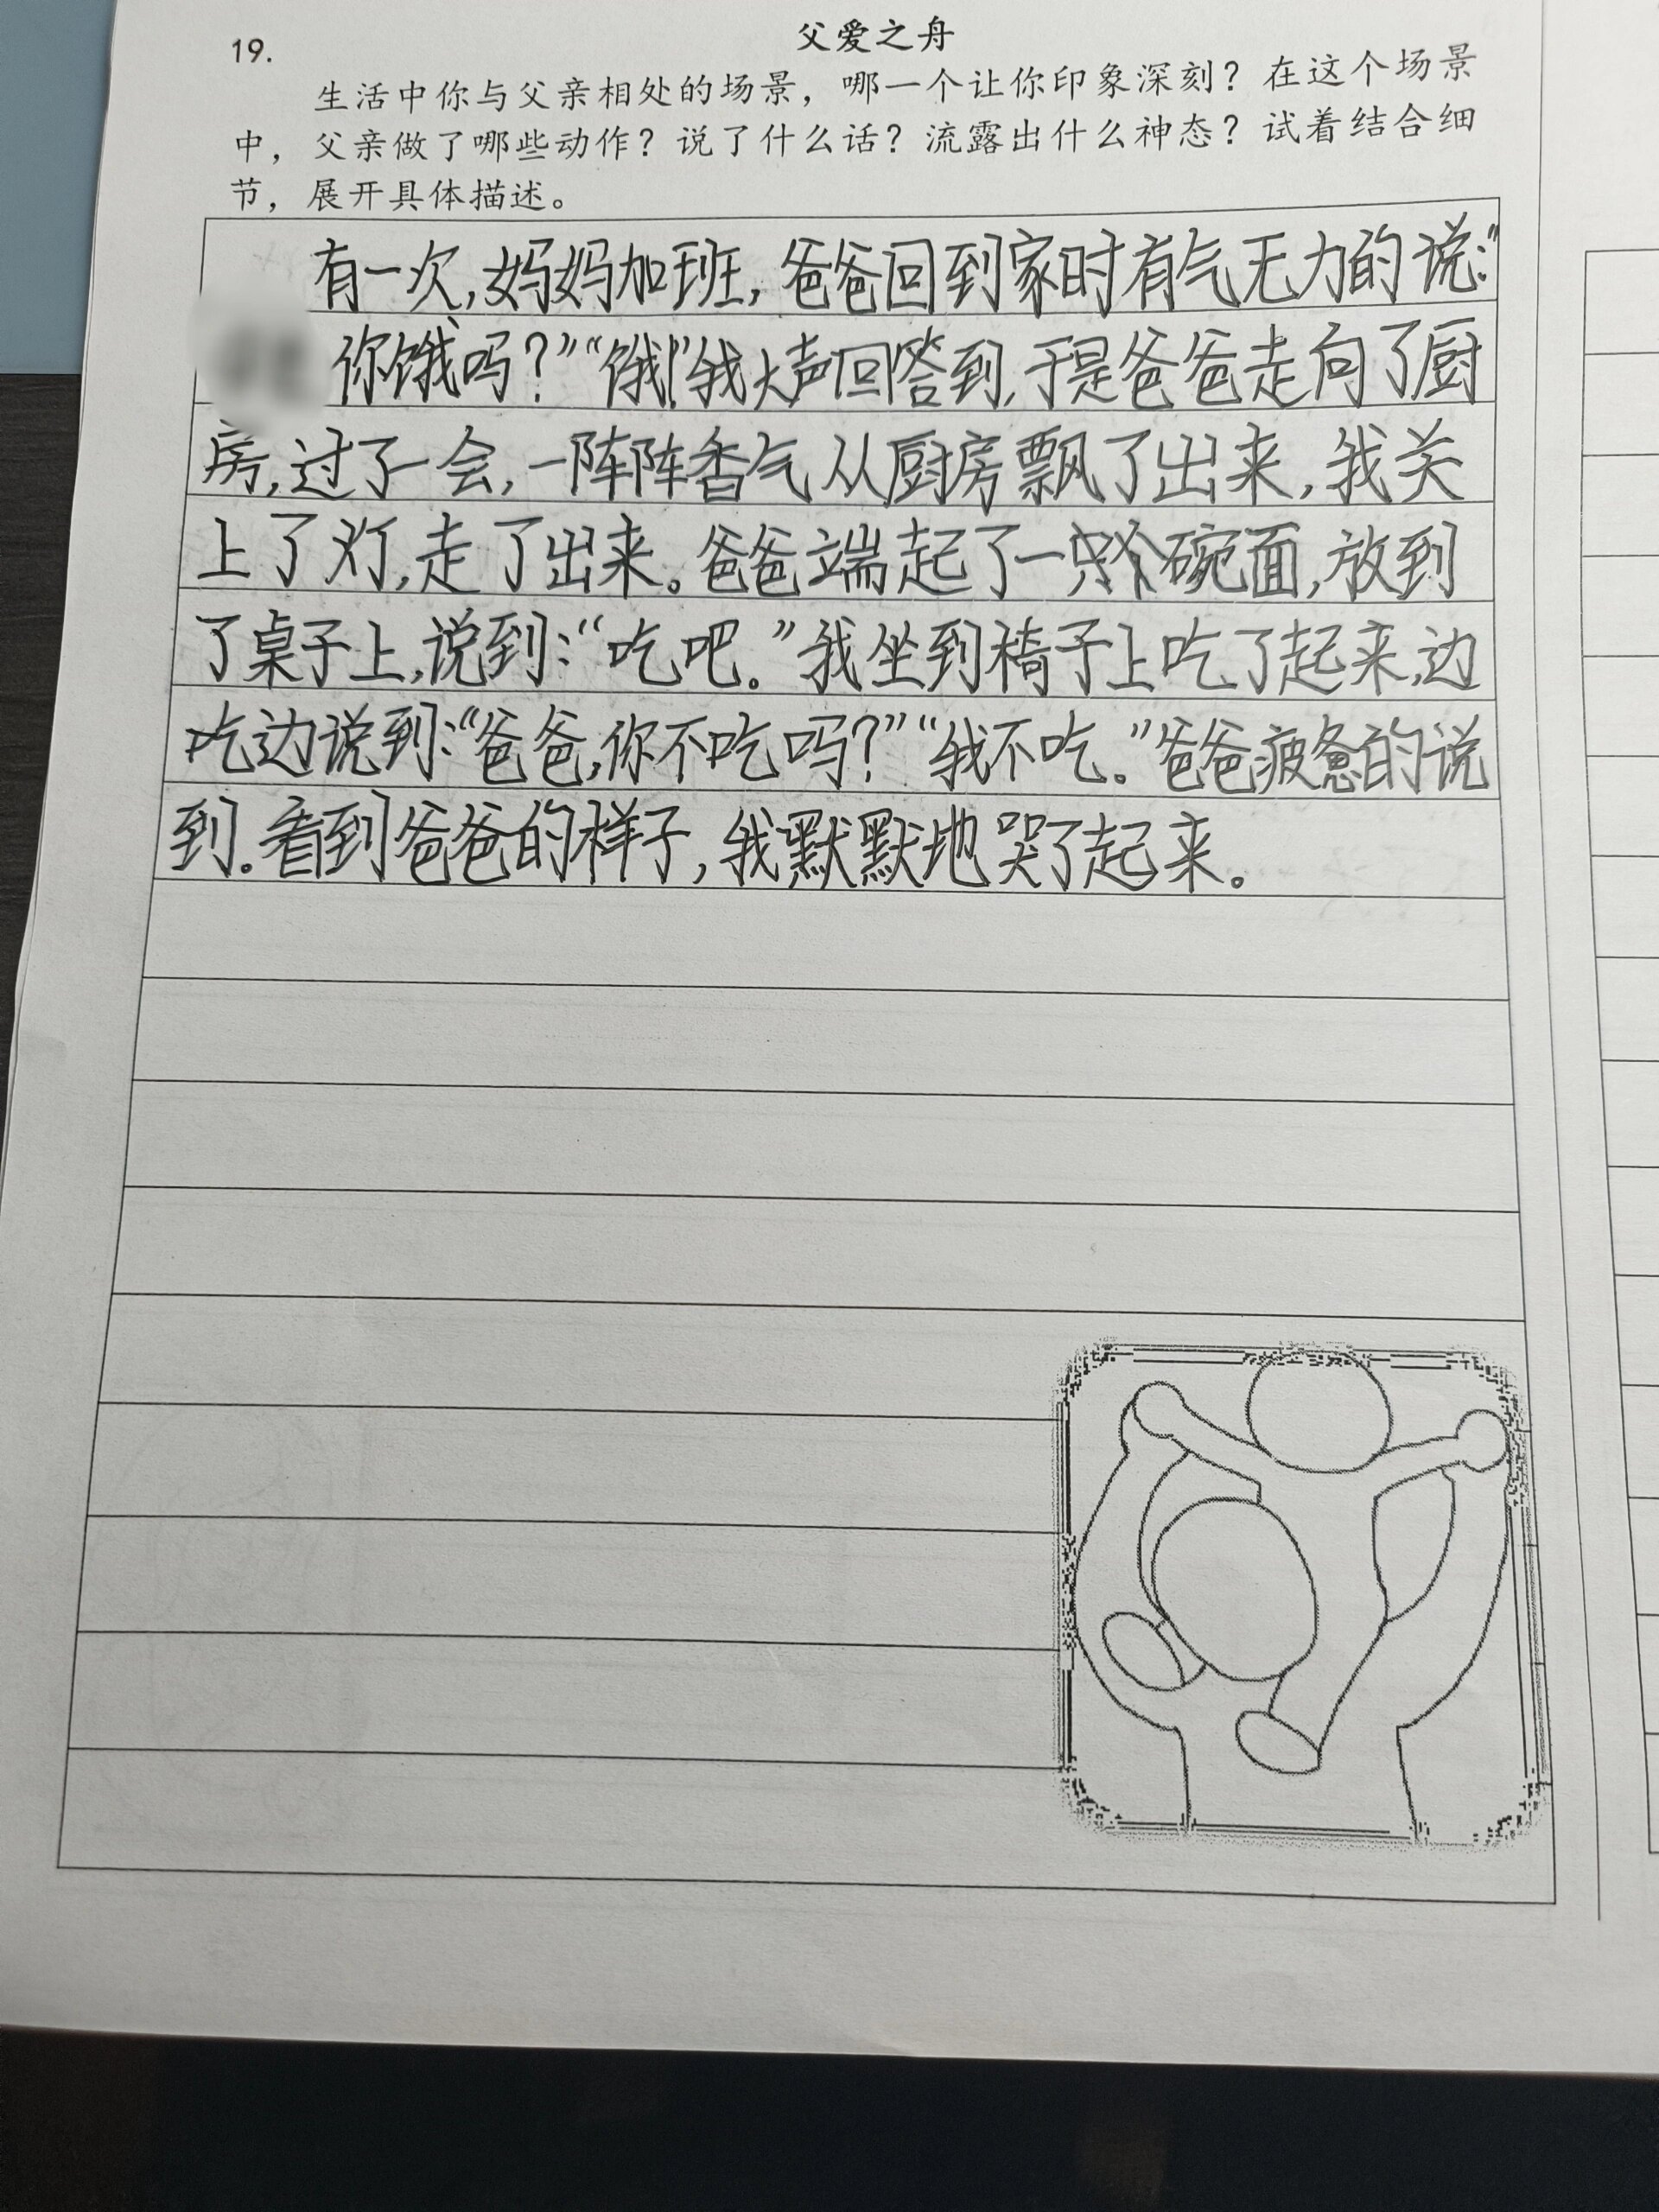 父爱之舟
19.
生活中你与父亲相处的场景，哪一个让你印象深刻？在这个场景
中，父亲做了哪些动作？说了什么话？流露出什么神态？试着结合细
节，展开具体描述。
有一次,妈妈加班,爸爸回到家时有气无力的说:“
你饿吗？”“饿!”我大声回答到,于是爸爸走向了厨
房,过了一会,一阵阵香气从厨房飘了出来,我关
上了灯,走了出来。爸爸端起了一碗面,放到
了桌子上,说到:“吃吧。”我坐到椅子上吃了起来,边
吃边说到:“爸爸,你不吃吗?”“我不吃。”爸爸疲惫的说
到。看到爸爸的样子,我默默地哭了起来。